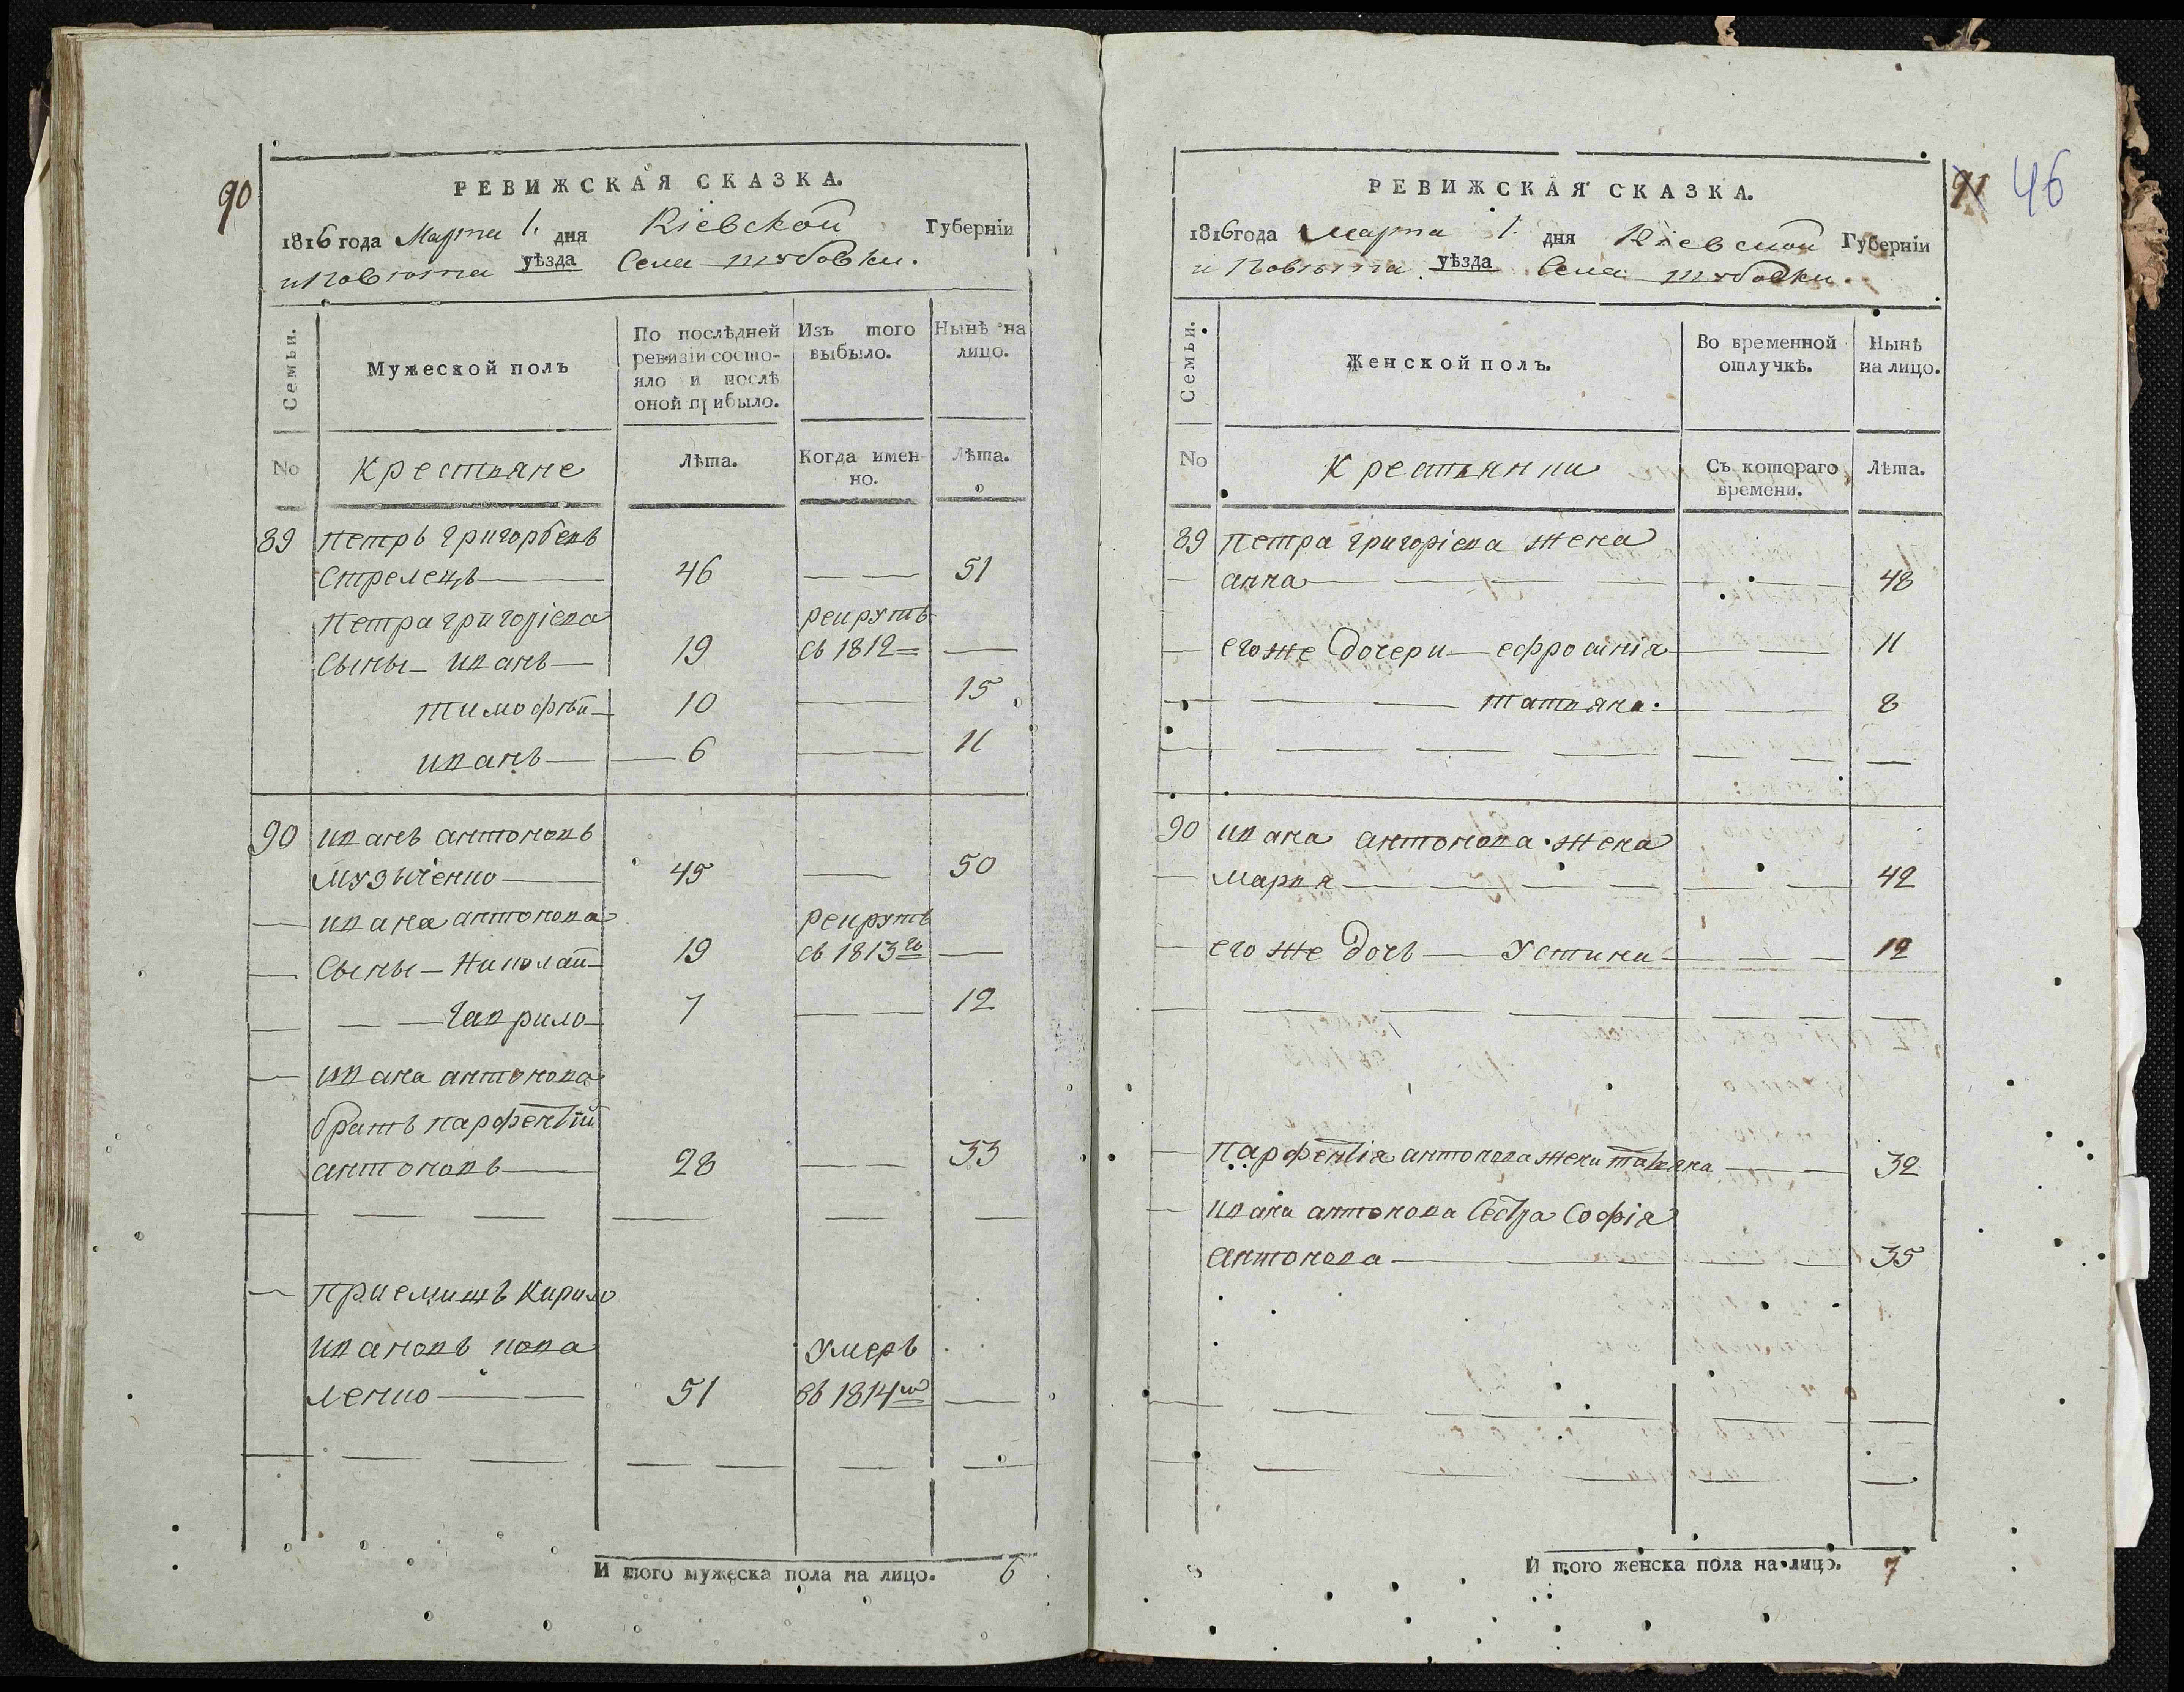 90
РЕВИЖСКАЯ СКАЗКА.
1816 года Марта 1. дня Кіевской Губерніи
и Повѣта уѣзда Села
Семьи.
Мужеской полъ
По послѣдней ревизіи состояло и послѣ оной прибыло.
Изъ того выбыло.
Нынѣ на лицо.
No
крестьяне
Лѣта.
Когда именно.
Лѣта.
89 петръ григорьевъ
стрелецъ 46 51
петра григоріева рекрутъ
сыны иванъ 19 въ 1812
тимофѣй 10 15
иванъ 6 11
90 иванъ антоновъ
музыченко 45 50
ивана антонова рекрутъ
сыны николай 19 въ 1813го
гаврило 7 12
ивана антонова
братъ парфентій
антоновъ 28 33
приемишъ кирило
ивановъ кова умеръ
ленко 51 въ 1814го
И того мужеска пола на лицо. 6
91 46
РЕВИЖСКАЯ СКАЗКА.
1816 года марта 1. дня Кіевской Губерніи
и Повѣта уѣзда Села
Семьи.
Женской полъ.
Во временной отлучкѣ.
Нынѣ на лицо.
No
крестьянки
Съ котораго времени.
Лѣта.
89 петра григоріева жена
анна 48
его же дочери ефросинія 11
татьяна. 8
90 ивана антонова жена
марья 42
его же дочь устина 12
парфентія антонова жена татьяна 32
ивана антонова сестра софія
антонова 35
И того женска пола на лицо. 7